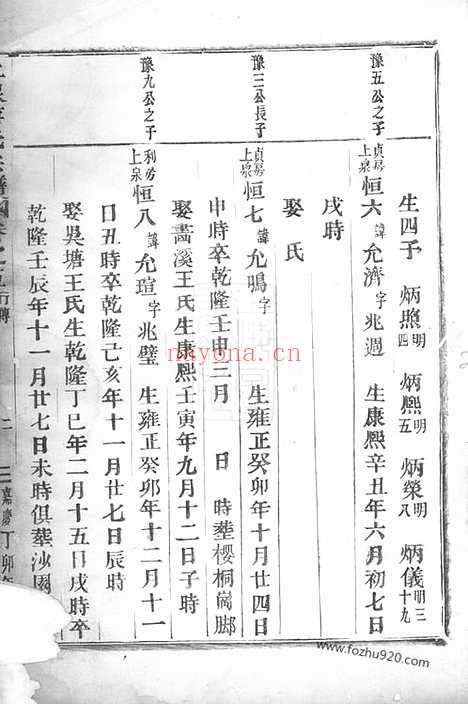 生四子 炳照明四 炳熙明五 炳榮明八 炳儀明三十九
豫五公之子
貞房上泉恒六諱允濟字兆週 生康熙辛丑年六月初七日
戌時
娶氏
豫三公長子
貞房上泉恒七諱允鳴字 生雍正癸卯年十月廿四日
申時卒乾隆壬申三月 日 時塟櫻桐崗脚
娶蕭溪王氏生康熙壬寅年九月十二日子時
豫九公之子
利房上泉恒八諱允瑄字兆璧 生雍正癸卯年十二月十一
日丑時卒乾隆己亥年十一月廿七日辰時
娶吳塘王氏生乾隆丁巳年二月十五日戌時卒
乾隆壬辰年十一月廿七日未時俱葬沙園
行傳
二
嘉慶丁卯年
nkyona.com
www.fozhu920.com